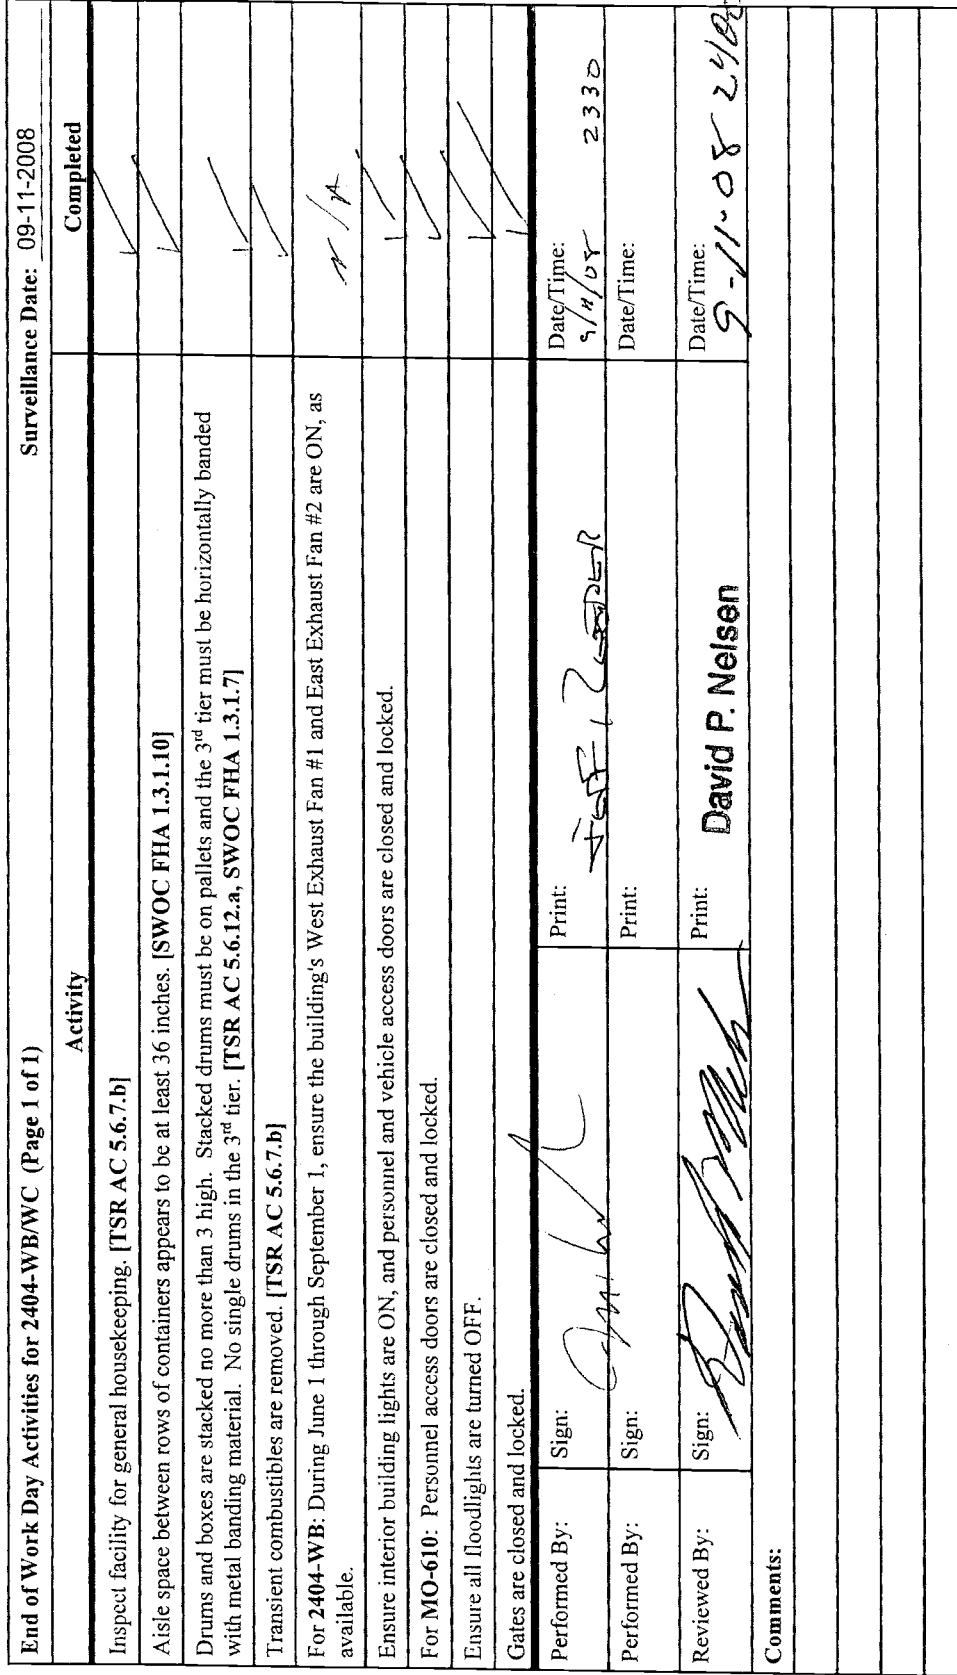 End of Work Day Activities for 2404-WB/WC (Page 1 of 1) Surveillance Date: 09-11-2008
Activity Completed
Inspect facility for general housekeeping. [TSR AC 5.6.7.b] ✓
Aisle space between rows of containers appears to be at least 36 inches. [SWOC FHA 1.3.1.10] ✓
Drums and boxes are stacked no more than 3 high. Stacked drums must be on pallets and the 3rd tier must be horizontally banded
with metal banding material. No single drums in the 3rd tier. [TSR AC 5.6.12.a, SWOC FHA 1.3.1.7] ✓
Transient combustibles are removed. [TSR AC 5.6.7.b] ✓
For 2404-WB: During June 1 through September 1, ensure the building's West Exhaust Fan #1 and East Exhaust Fan #2 are ON, as N/A
available.
Ensure interior building lights are ON, and personnel and vehicle access doors are closed and locked. ✓
For MO-610: Personnel access doors are closed and locked. ✓
Ensure all floodlights are turned OFF. ✓
Gates are closed and locked. ✓
Performed By: Sign: Print: Date/Time:
9/11/08 2330
Performed By: Sign: Print: Date/Time:
Reviewed By: Sign: Print: David P. Nelsen Date/Time:
9-11-08
Comments: